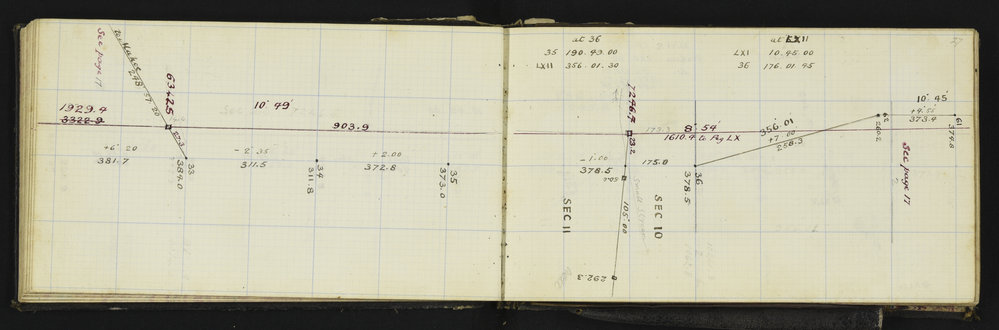 See page 17
248 57 20
6342.5
10° 49'
1929.4
3322.9
903.9
27.3
+6° 20
381.7
384.0
33
- 2° 35
311.5
34
311.8
+2.00
372.8
35
373.0
at 36
35 190.43.00
LXII 356.01.30
at LXII
LXI 10.45.00
36 176.01.45
27
7246.4
8° 54'
1610.4 to Peg LX
23.2
- 1.00
378.5
175.0
36
378.5
105° 00
292.3
SEC 11
SEC 10
356° 01
+7° 00
258.3
62
260.2
10° 45'
373.4
61
374.8
See page 17